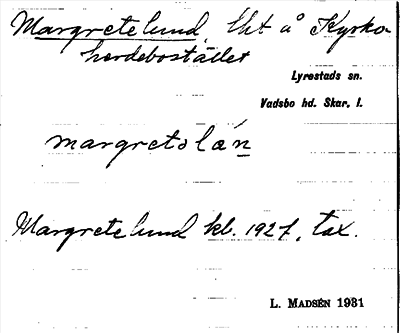 Margretelund, lht å Kyrko-
herdebostället
Lyrestads sn.
Vadsbo hd. Skar. l.
margretslán
Margretelund kl. 1927, tax.
L. MADSÉN 1931